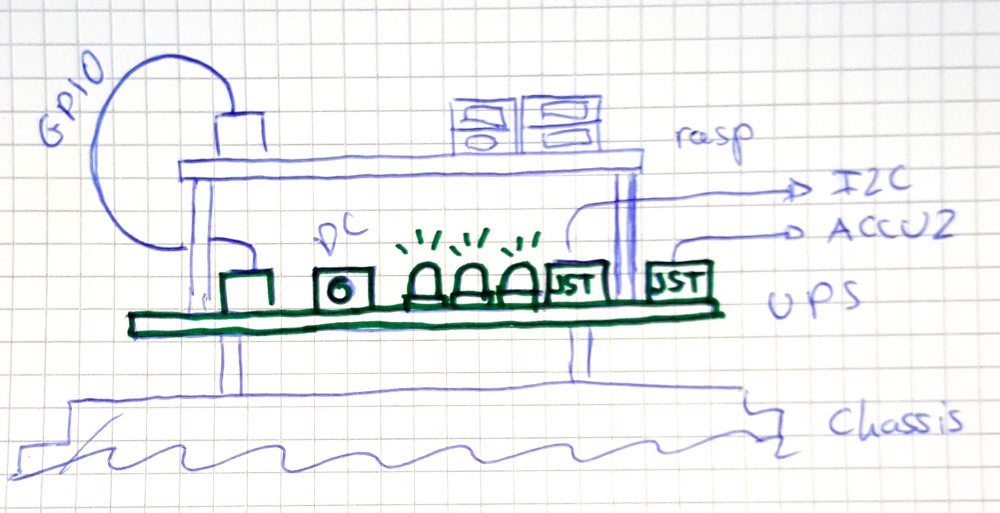 GPIO
rasp
I2C
DC
ACCU2
JST
JST
UPS
Chassis